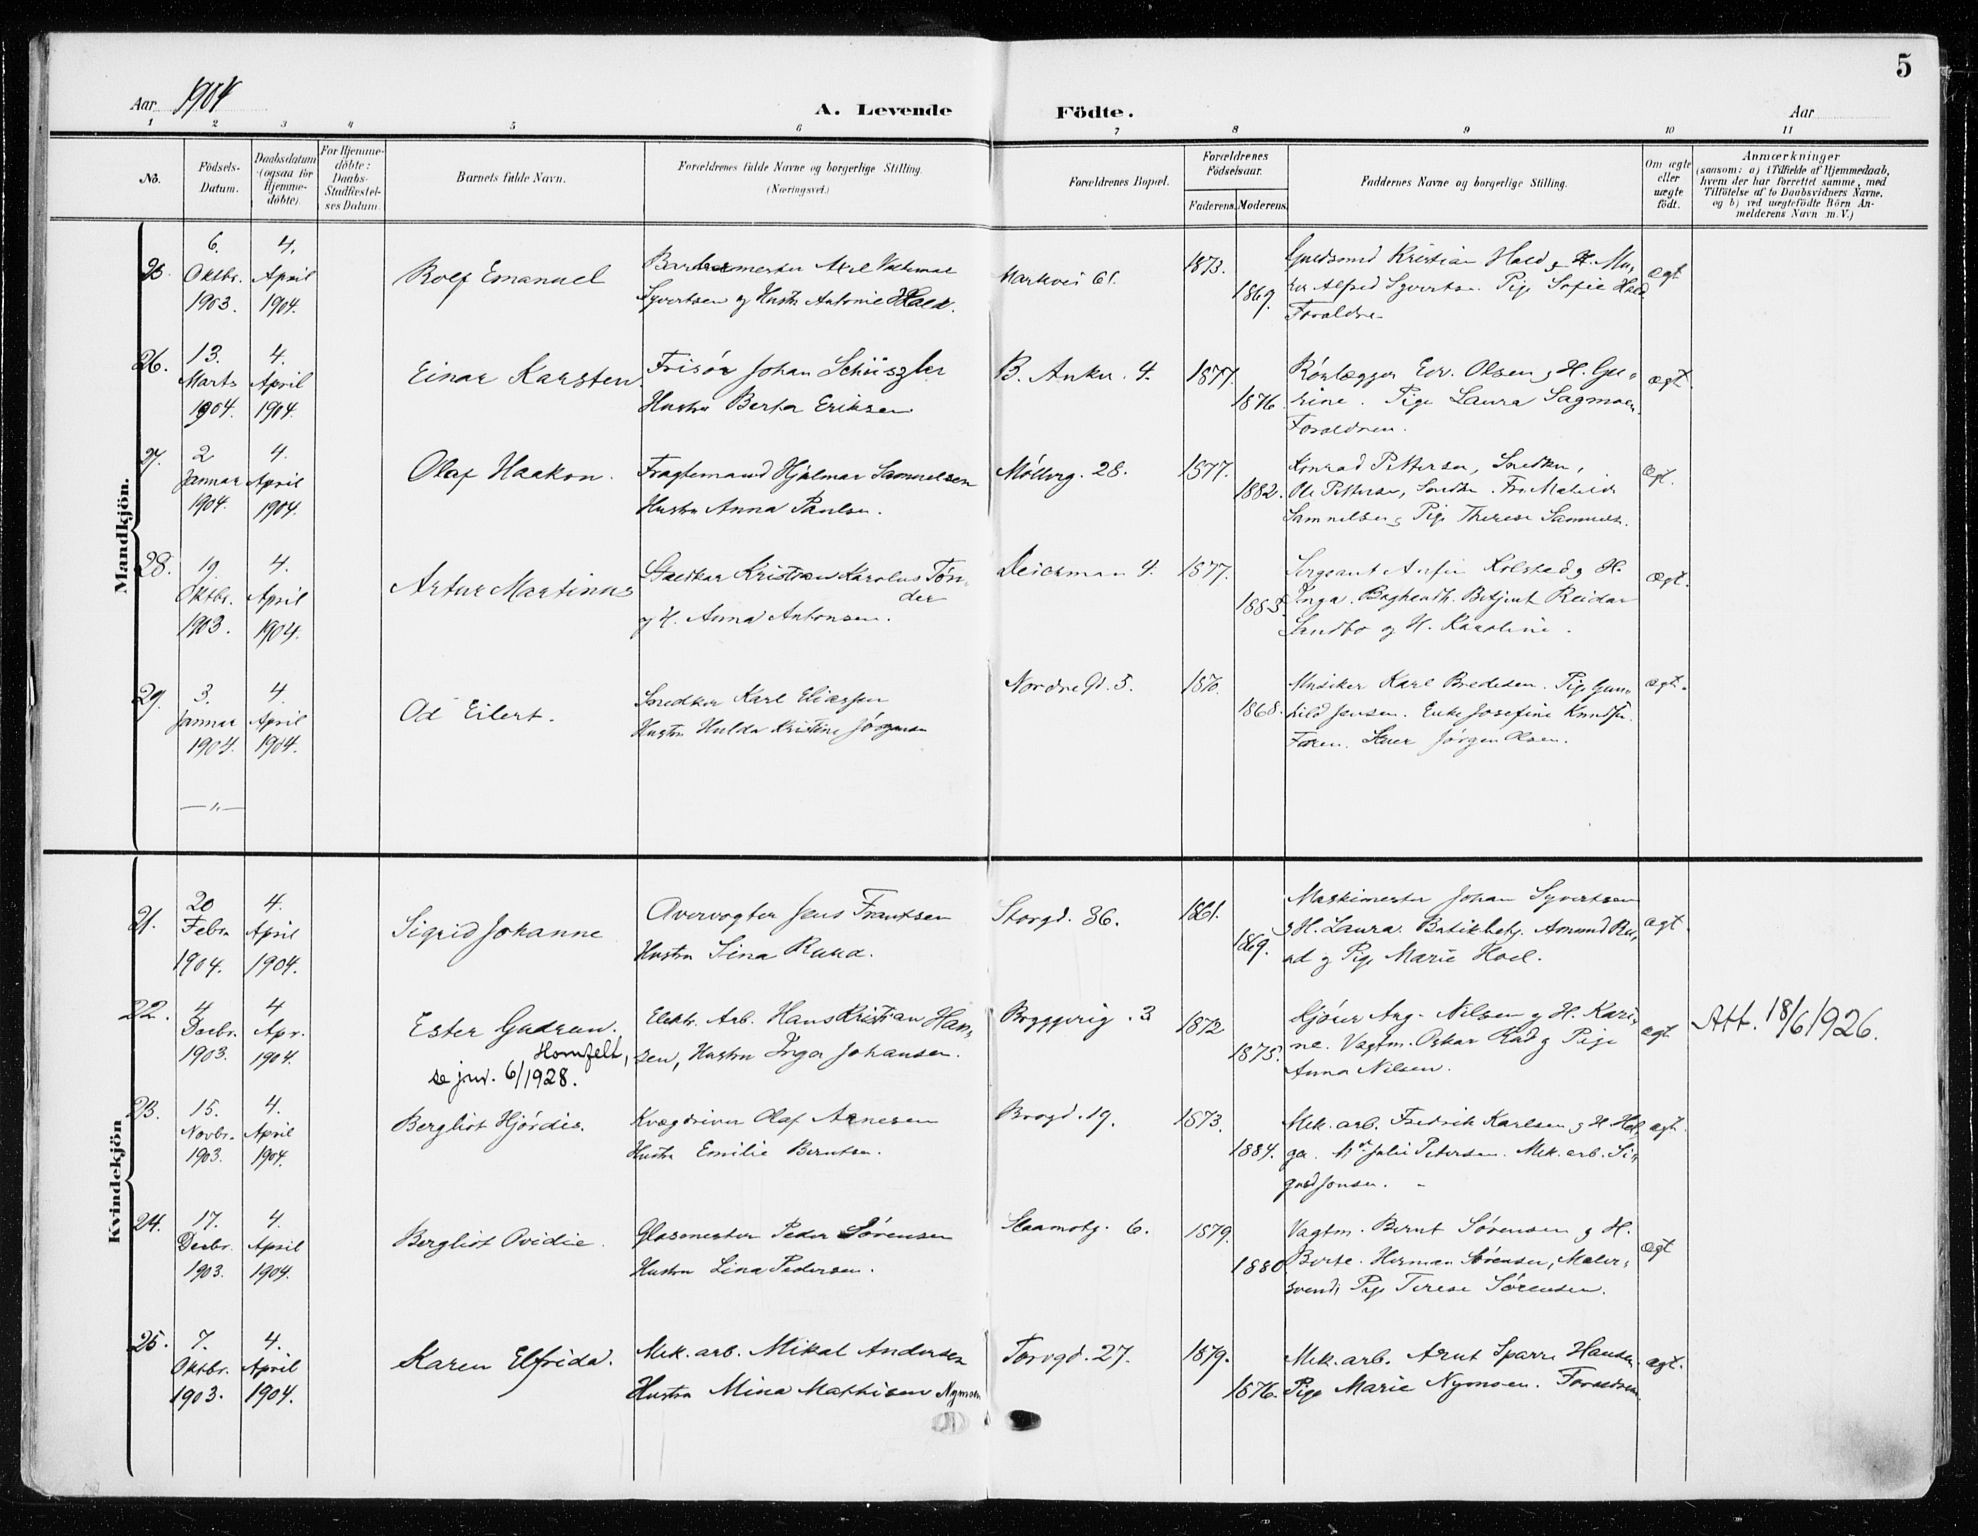 5
Aar 1904
A. Levende Födte.
Aar
1 2 3 4 5 6 7 8 9 10 11
No.
Födsels-Datum.
Daabsdatum (ogsaa for Hjemme-döbte).
For Hjemme-döbte: Daabs-Stadfæstel-ses Datum.
Barnets fulde Navn.
Forældrenes fulde Navne og borgerlige Stilling.
(Næringsvei.)
Forældrenes Bopæl.
Forældrenes Födselsaar.
Faderens. Moderens.
Faddernes Navne og borgerlige Stilling.
Om ægte eller uægte födt.
Anmærkninger
(saasom: a) i Tilfælde af Hjemmedaab,
hvem der har forrettet samme, med
Tilföielse af to Daabsvidners Navne.
og b) ved uægtefödte Börn An-
melderens Navn m. V.)
Mandkjön.
25. 6. Oktbr. 1903. 4. April 1904.
Rolf Emanuel
Barbermester Axel
Syvertsen og Hustru Antonie Hald.
Markvei 61.
1873. 1869.
Guldsmed Kristian Hald og H.
Alfred Syvertsen Pige Sofie Hald
Forældre
ægt
26. 13. Marts 1904. 4. April 1904.
Einar Karsten
Frisör Johan
Hustru Berta Eriksen
B. Anker. 4.
1877. 1876.
Rörlægger Edv. Olsen og H.
Pige Laura Sagmoen.
Forældren.
ægt.
27. 2 Januar 1904. 4. April 1904.
Olaf Haakon.
Fragtemand Hjalmar Samuelsen
Hustru Anna Paulsen.
Möllerg. 28.
1877. 1882.
Konrad Pettersen, Snedker,
Ole Pettersen,
Samuelsen og Pige Therese Samuels.
ægt.
28. 19. Oktbr. 1903. 4. April 1904.
Artur Martinus
Kristian Karolus Tön-
der
og H. Anna Antonsen.
Deichman 4.
1877. 1883.
Sergeant Kolstad og H.
Inga. Betjent Reidar
Sandbo og H. Karoline.
ægt.
29. 3. Januar 1904. 4 April 1904.
Od Eilert.
Snedker Karl Eliassen
Hustru Hulda Kristine Jörgensen
Nordregd. 3.
1870. 1868.
Musiker Karl Bredesen. Pige Gun-
hild Jensen. Enke Josefine Knudsen.
Faren. Jörgen Olsen.
ægt.
—"—
Kvindekjön
21. 20 Febr 1904. 4. April 1904.
Sigrid Johanne
Jens Frantsen
Hustru Lina Ruud.
Storgd. 36.
1861. 1869.
Maskinmester Johan Syvertsen
og H. Laura. Amund Ru-
ud og Pige Marie Hoel.
ægt.
22. 4 Decbr. 1903. 4 Apr. 1904.
Ester Gudrun.
Hornfelt,
se jur. 6/1928.
Elektr. Arb. Hans Kristian Han-
sen, Hustru Inga Johansen.
Bryggerig. 3
1872 1875.
Aug. Nilsen og H. Kari-
ne. Vagtm. Oskar og Pige
Anna Nilsen.
ægt
Att. 18/6 1926.
23. 15. Novbr. 1903. 4. April 1904.
Bergliot Hjördis.
Kvægdriver Olaf Arnesen
Hustru Emilie Berntsen.
Brogd. 19.
1873. 1884.
Mek. arb. Fredrik Karlsen og H. Hel-
ga. Julie Petersen. Mek. arb. Si-
gurd Jonsen.
ægt.
24. 17. Decbr. 1903. 4. April 1904.
Bergliot Ovidie.
Glasmester Peder Sörensen
Hustru Lina Pedersen.
6.
1879. 1880
Vagtm. Bernt Sörensen og H.
Berte. Herman Sörensen, Maler-
svend, Pige Terese Sörensen.
ægt
25. 7. Oktbr. 1903. 4. April 1904.
Karen Elfrida.
Mek. arb. Mikal Andersen
Hustru Mina Mathisen Nymoen
Torvgd. 27.
1879. 1876.
Mek. arb. Arnt Sparre Hansen.
Pige Marie Nymoen. Forældrene
ægt.